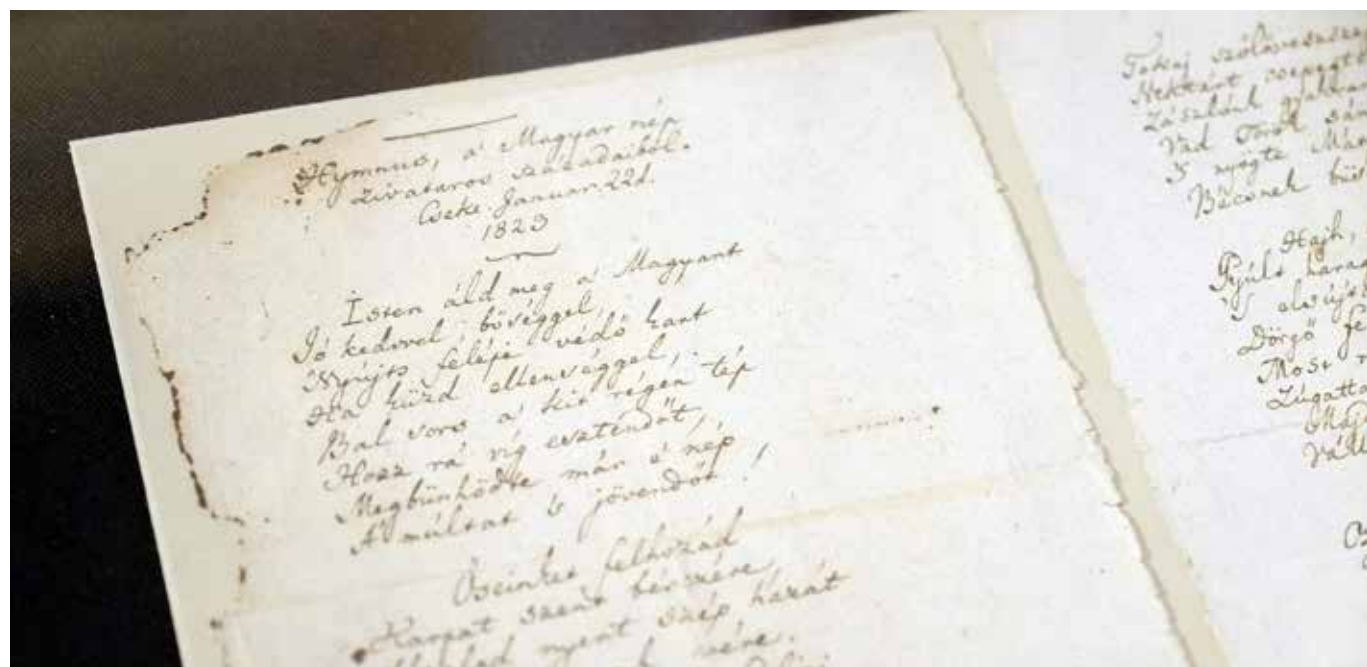 Hymnus, a' Magyar nép
zivataros századaiból.
Cseke. Januar. 22d.
1823
Isten áld meg a' Magyart
Jó kedvvel, bőséggel,
Nyújts feléje védő kart
Ha küzd ellenséggel,
Bal sors a' kit régen tép
Hozz rá víg esztendőt,
Megbűnhődte már e' nép
A' múltat 's jövendőt!
Őseinket felhozád
Kárpát szent bérczére,
nyert szép hazát
Tokaj szőlővesszein
Nektárt csepegtettél
Zászlónk gyakran
Vad Török sánc
'S nyögte Má
Bécsnek büs
Hajh,
Gyúlt harag
'S elsújt
Dörgő fe
Most r
Zúgatta
Maj
Vál